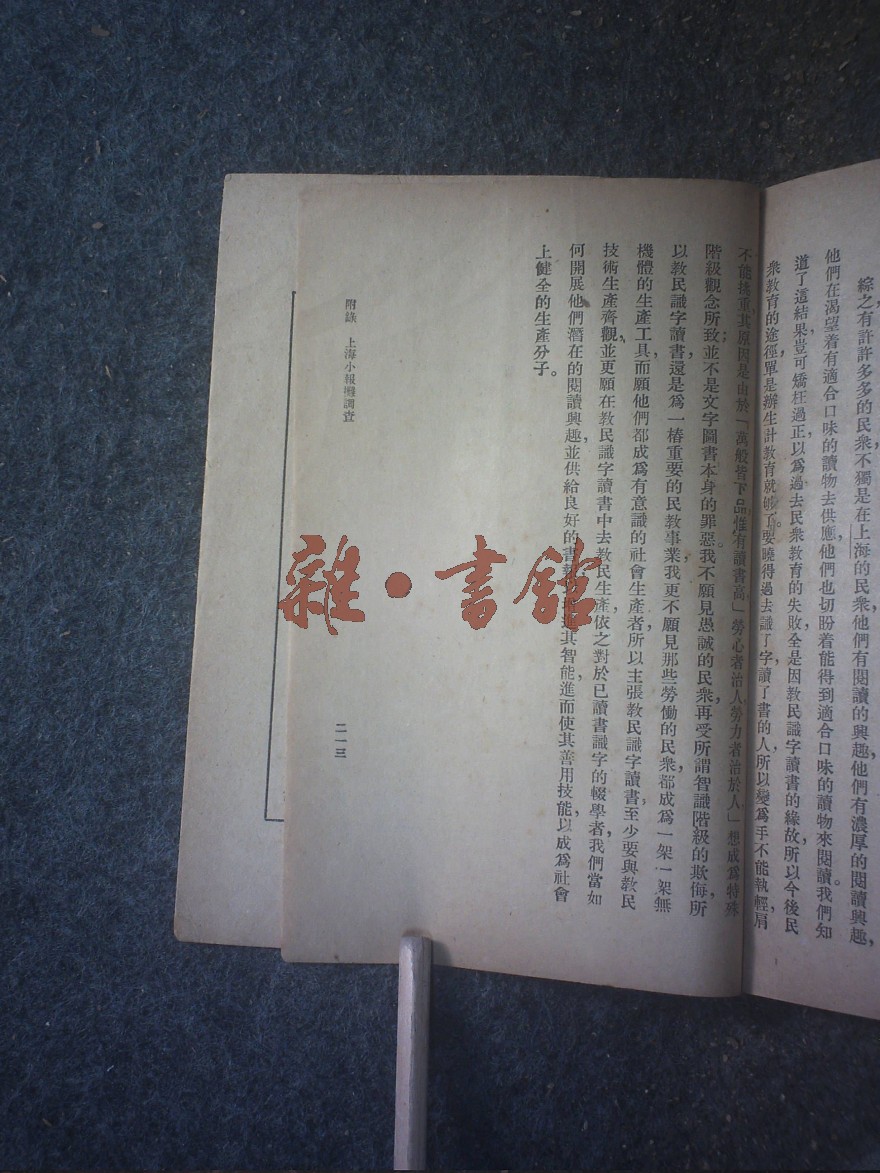 綜之有許許多多的民衆不獨是在上海的民衆他們有閱讀的興趣他們有濃厚的閱讀興趣,
他們在渴望着有適合口味的讀物去供應,他們也切盼着能得到適合口味的讀物來閱讀。我們知
道了這結果豈可矯枉過正以爲過去民衆教育的失敗全是因教民識字讀書的緣故所以今後民
衆教育的途徑,單是辦生計教育就够了。要曉得過去識了字,讀了書的人,所以變爲手不能執輕,肩
不能挑重,其原因是由於「萬般皆下品,惟有讀書高,」勞心者治人,勞力者治於人」想成爲特殊
階級觀念所致;並不是文字圖書本身的罪惡。我不願見愚誠的民衆,再受所謂智識階級的欺侮,所
以教民識字讀書,還是爲一樁重要的民教事業。我更不願見那些勞働的民衆,都成爲一架一架無
機體的生產工具,而願他們都成爲有意識的社會生產者,所以主張教民識字讀書,至少要與教民
技術生產齊觀,並更願在教民識字讀書中去教民生產,依之對於已讀書識字的輟學者,我們當如
何開展他們潛在的閱讀興趣,並供給良好的書 其智能,進而使其善用技能,以成爲社會
上健全的生產分子。
附錄 上海小報攤調查
二一三
雜·書館